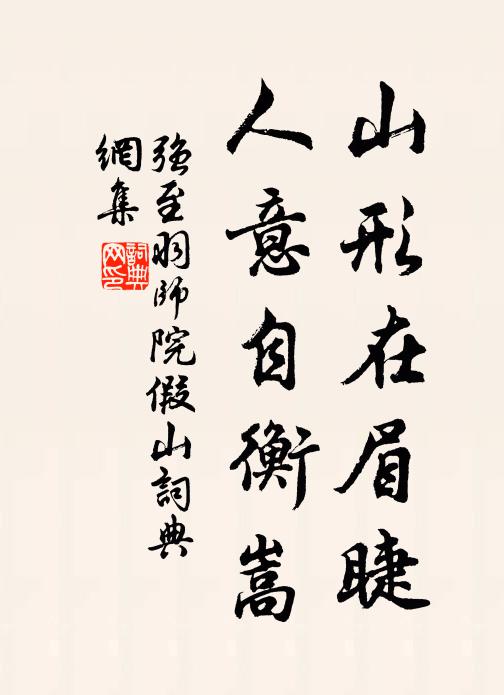 山形在眉睫
人意自衡嵩
强至羽師院假山詞典
網集
詞典
网印